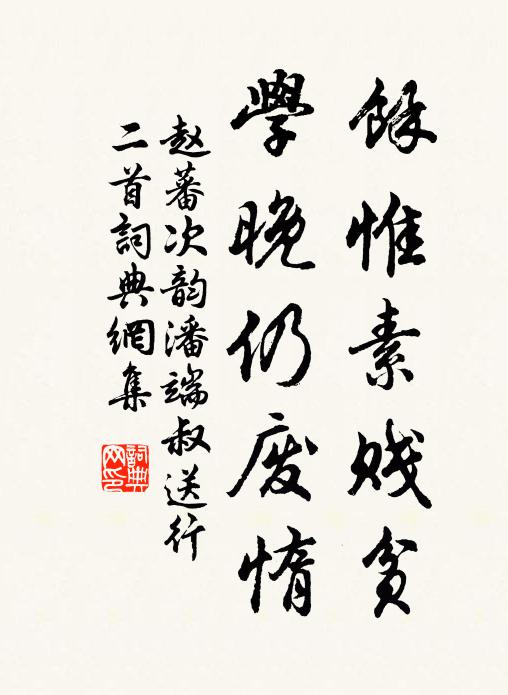 餘惟素贱貧
學晚仍废惰
赵蕃次韵潘端叔送行
二首詞典網集
詞典网印